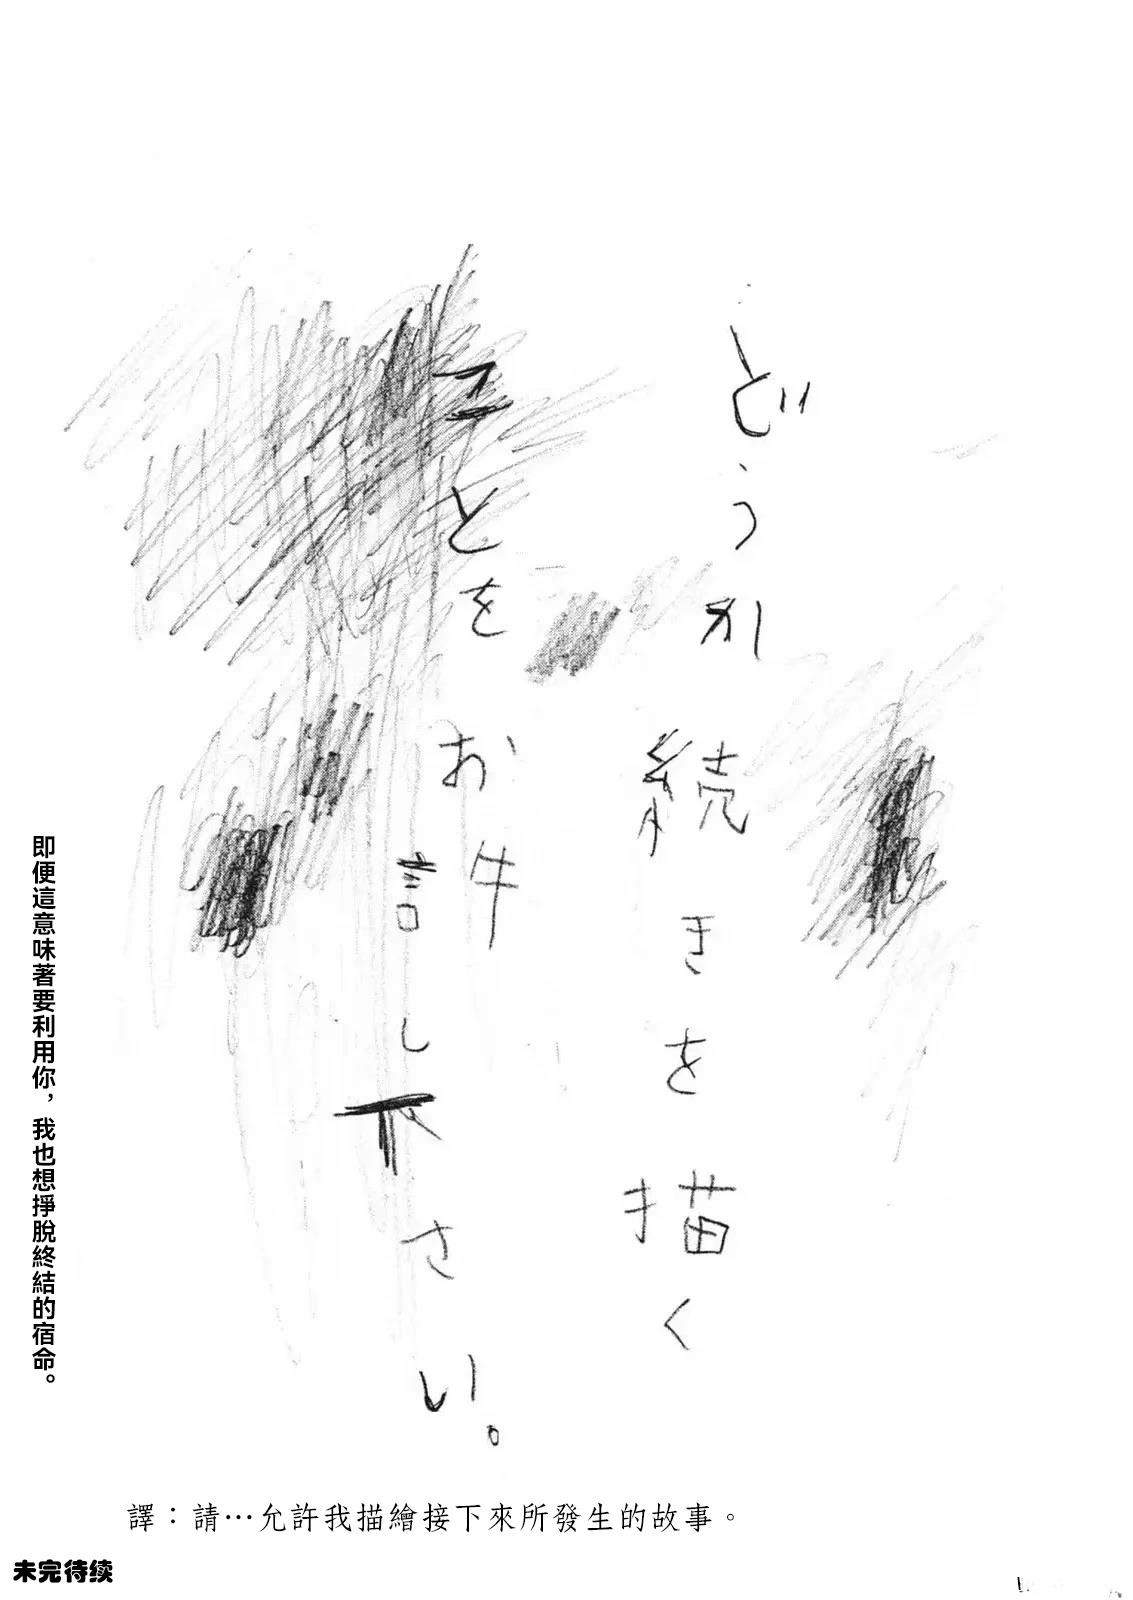 どうか続きを描く
ことをお許し下さい。
即便這意味著要利用你，我也想掙脫終結的宿命。
譯：請…允許我描繪接下來所發生的故事。
未完待续